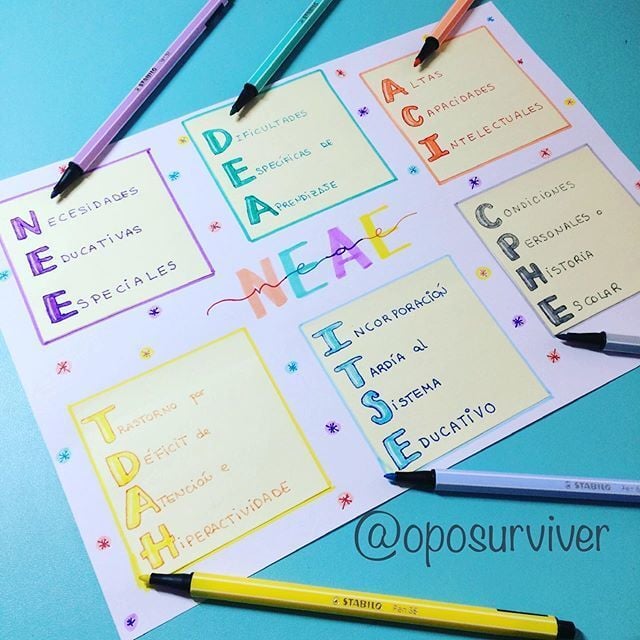 NECESIDADES
EDUCATIVAS
ESPECIALES
DIFICULTADES
ESPECÍFICAS DE
APRENDIZAJE
ALTAS
CAPACIDADES
INTELECTUALES
NEAE
neae
CONDICIONES
PERSONALES O
HISTORIA
ESCOLAR
TRASTORNO por
DÉFICIT de
ATENCIÓN e
HIPERACTIVIDADE
INCORPORACIÓN
TARDÍA al
SISTEMA
EDUCATIVO
@oposurviver
STABILO
STABILO
STABILO Pen 68